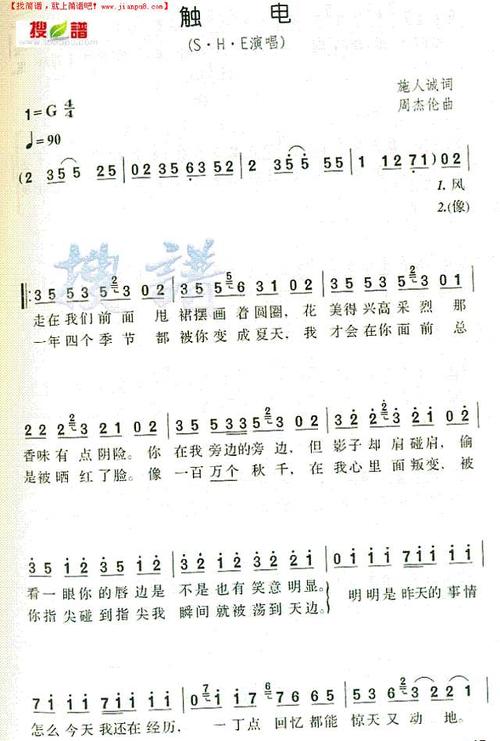 【找简谱，就上简谱吧！www.jianpu8.com】
搜谱
触 电
(S·H·E演唱)
施人诚词
周杰伦曲
1=G 4/4
♩=90
(2 355 255 | 02 35 6352 | 2 355 255 | 1 1271) 02 |
1.风
2.(像)
搜 谱
35 53 523 02 | 35 55 53 02 | 35 53 523 021 |
走在我们前面 甩 裙摆画着圆圈，花 美得兴高采烈 那
一年四个季节 都 被你变成夏天，我 才会在你面前 总
22 22 23 21 02 | 35 3533 21 02 | 23 23 21 02 |
香味有点阴险。你 在我旁边的旁边，但 影子却肩碰肩，偷
是被晒红了脸。像 一百万个 秋千，在 我心里面叛变，被
35 12 35 11 | 32 12 3211 | 01 11 7111 |
看一眼你的唇边是 不是也有笑意明显。 明明是昨天的事情
你指尖碰到指尖我 瞬间就被荡到天边。
71 11 7111 | 07 16 55 | 56 32 221 |
怎么今天我还在经历， 一丁点 回忆都能 惊天又动 地。